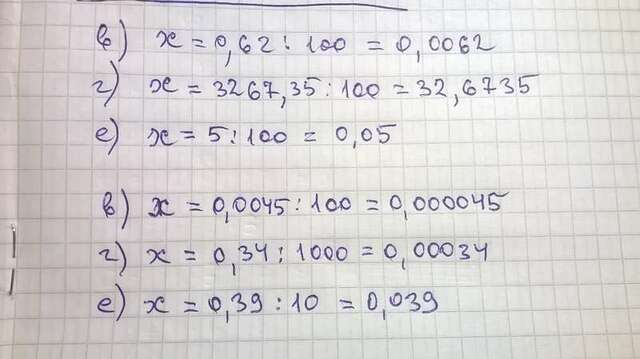 в) x = 0,62 : 100 = 0,0062
г) x = 3267,35 : 100 = 32,6735
е) x = 5 : 100 = 0,05
в) x = 0,0045 : 100 = 0,000045
г) x = 0,34 : 1000 = 0,00034
е) x = 0,39 : 10 = 0,039